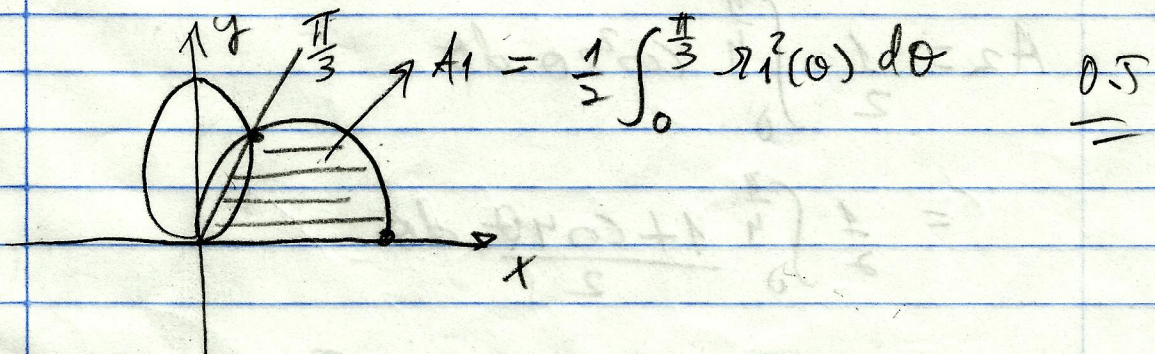 y
π/3
A1 = 1/2 ∫₀^{π/3} r1²(θ) dθ
0.5
x